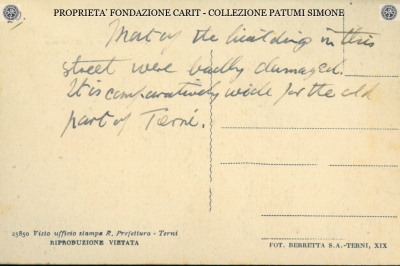 PROPRIETA' FONDAZIONE CARIT - COLLEZIONE PATUMI SIMONE
Most of the building in this
street were badly damaged.
It is comparatively wide for the old
part of Terni.
25850 Visto ufficio stampa R. Prefettura - Terni
RIPRODUZIONE VIETATA
FOT. BERRETTA S.A.-TERNI, XIX